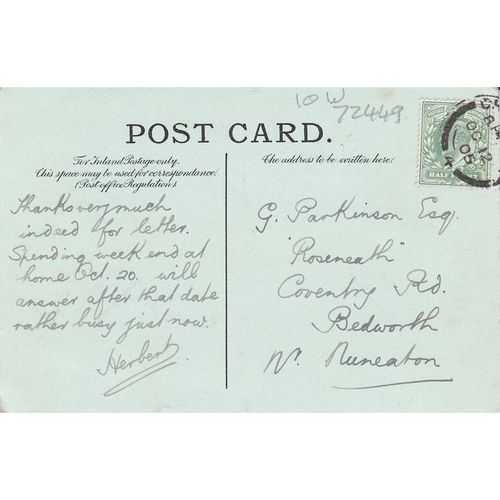 10W
72449
POST CARD.
For Inland Postage only.
This space may be used for correspondence.
(Post office Regulation).
The address to be written here.
HALF
Thanks very much
indeed for letter.
Spending week end at
home Oct. 20. will
answer after that date
rather busy just now.
Herbert.
G. Parkinson Esq.
"Roseneath"
Coventry Rd.
Bedworth
Nr. Nuneaton